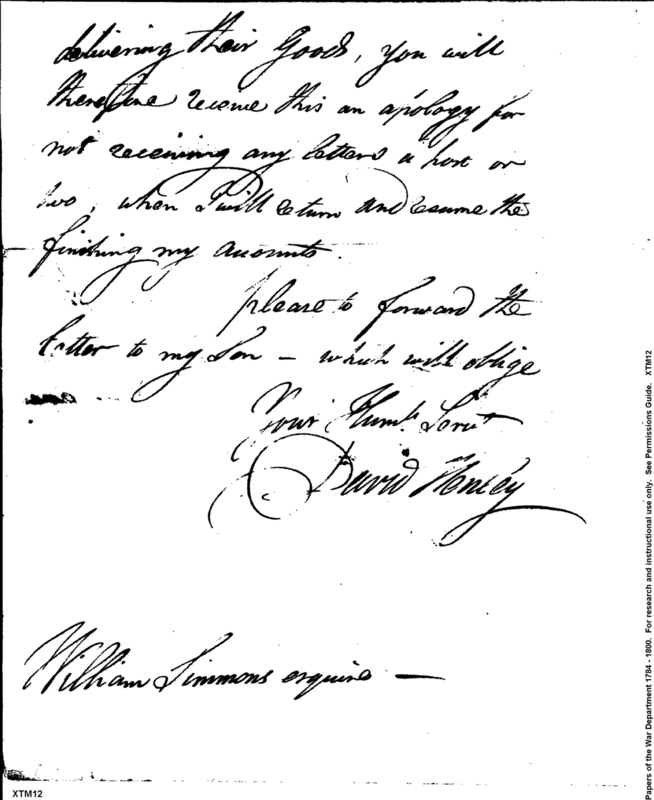 delivering their Goods, you will
therefore receive this an apology for
not receiving any letters a post or
two, when I will return and resume the
finishing my accounts.
please to forward the
letter to my Son – which will oblige
Your Humb. Servt
David Henley
William Simmons esquire —
XTM12
Papers of the War Department 1784 - 1800. For research and instructional use only. See Permissions Guide. XTM12